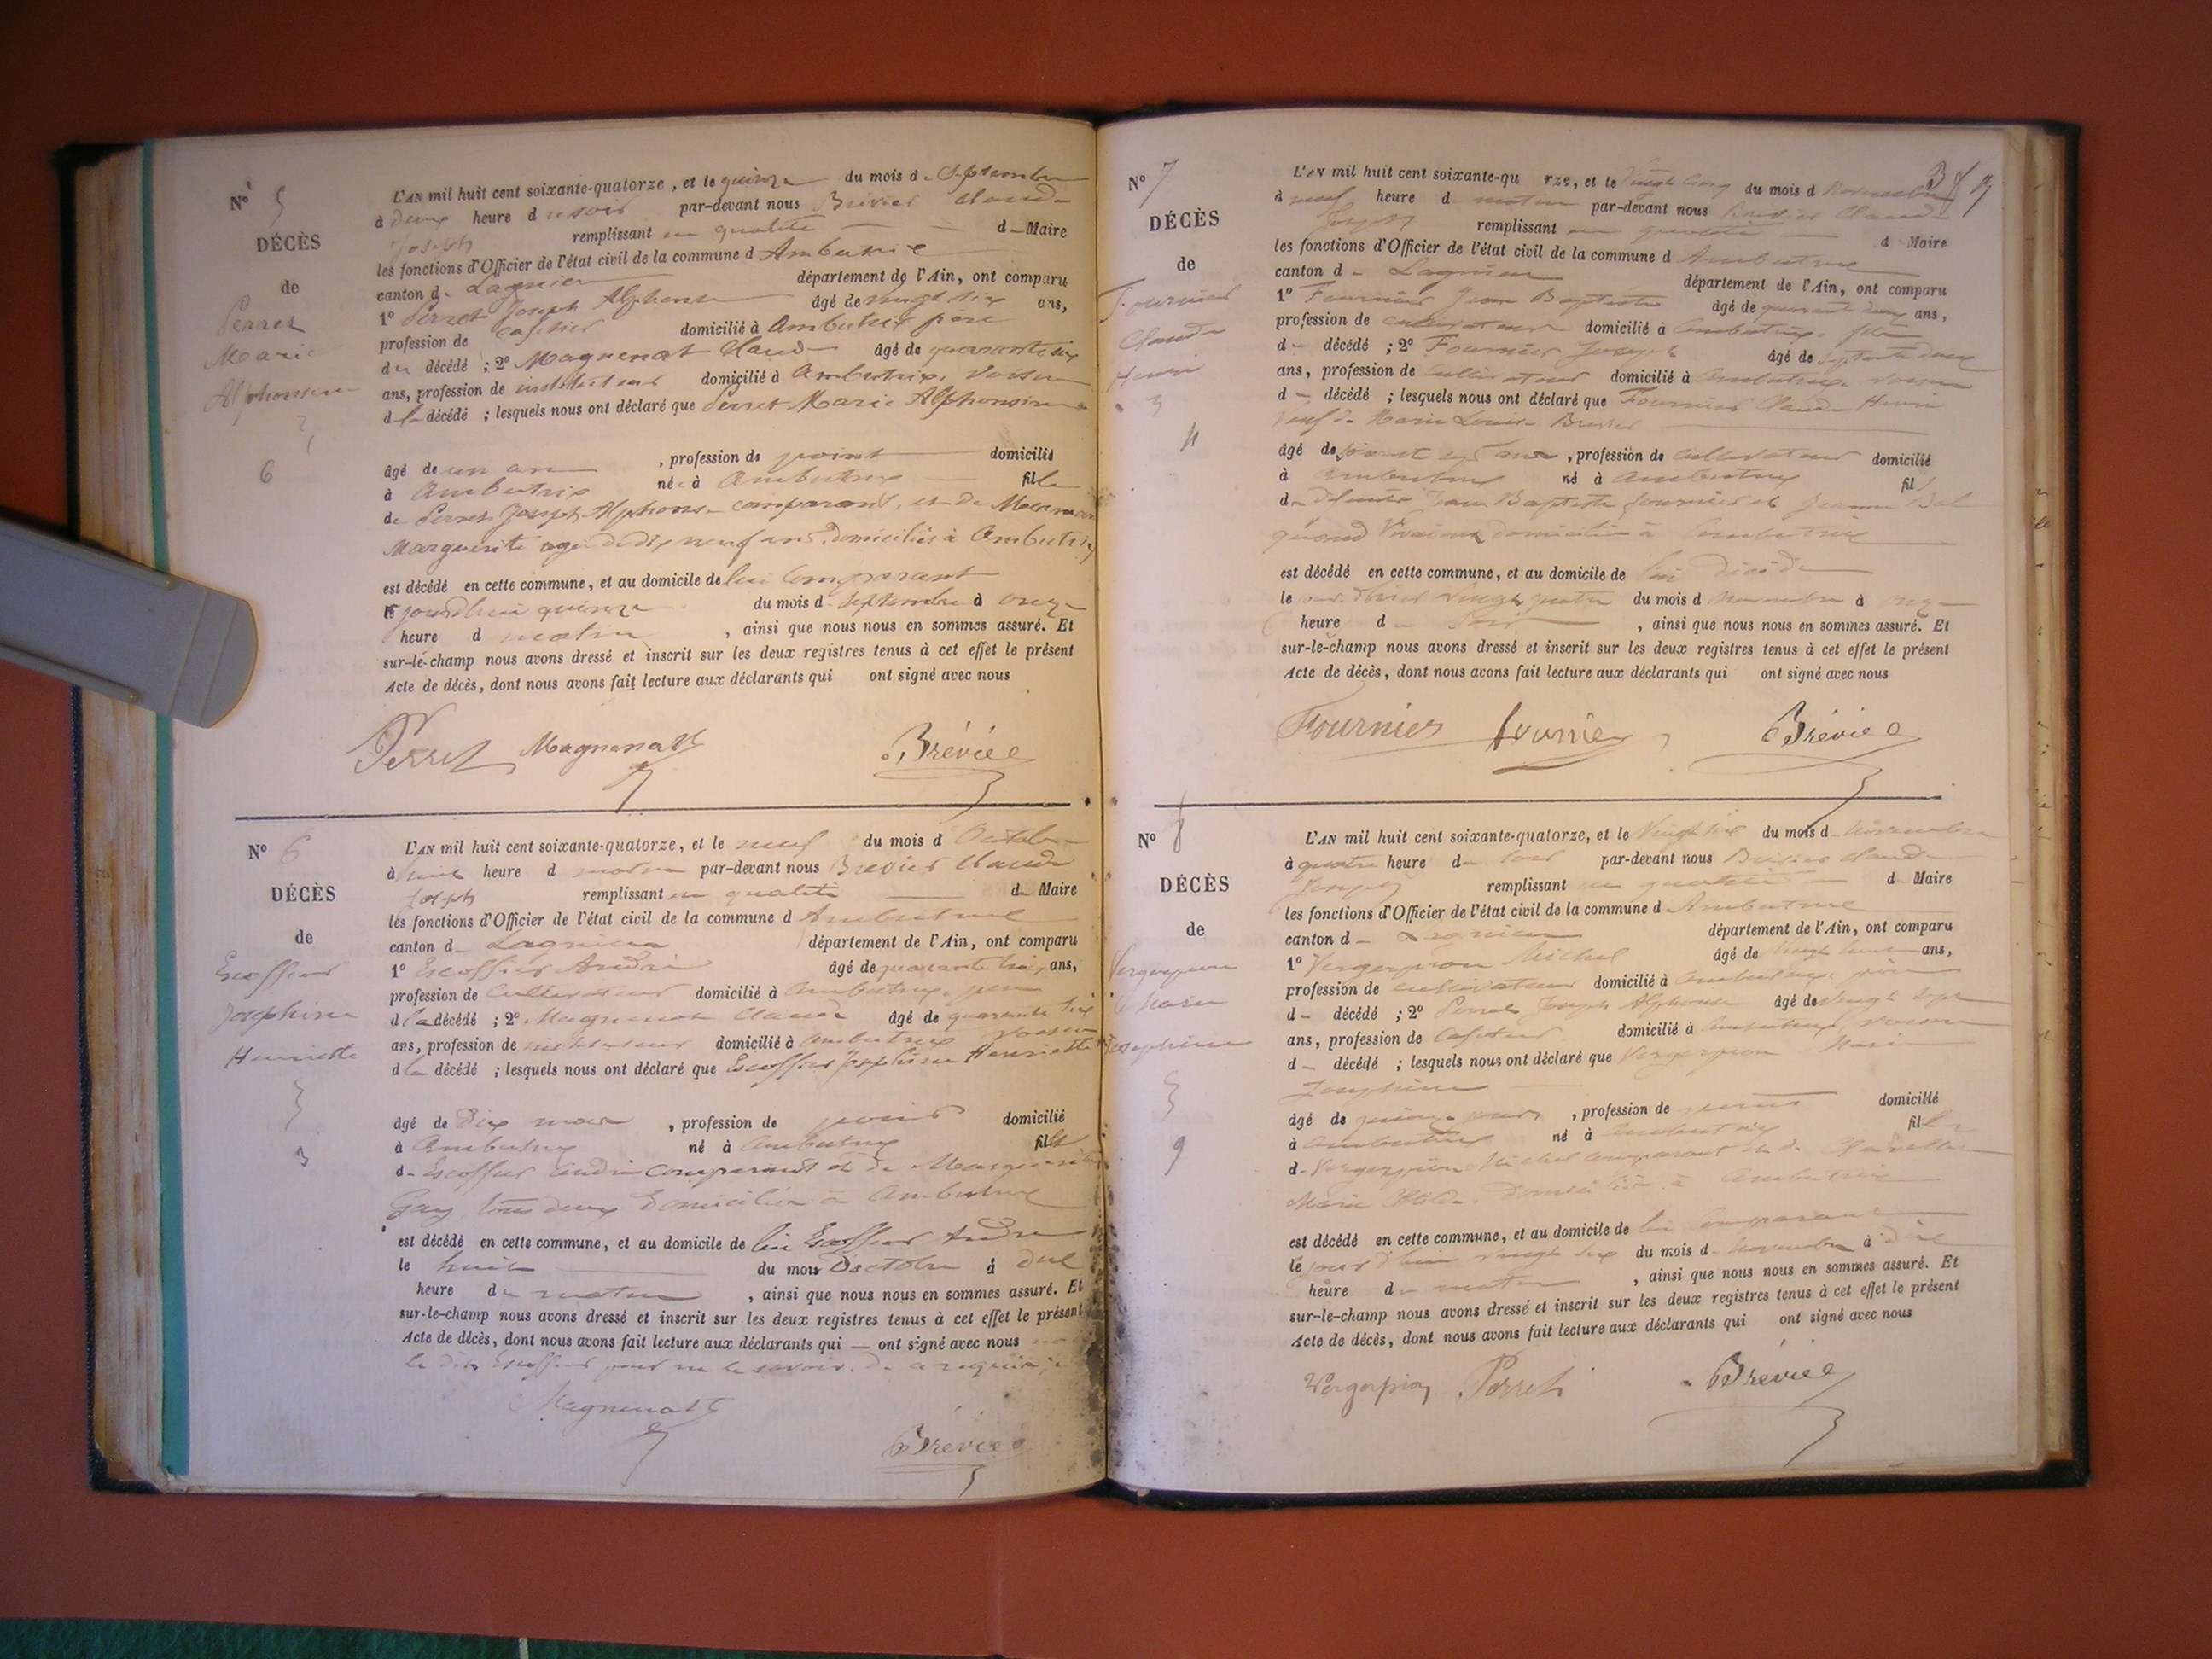 N° 5
DÉCÈS
de
Perret
Marie
Alphonsine
6
L'AN mil huit cent soixante-quatorze, et le quinze du mois de Septembre
à deux heure du soir par-devant nous Brévier Claude
Joseph remplissant en qualité de Maire
les fonctions d'Officier de l'état civil de la commune d Ambutrix
canton de Lagnieu département de l'Ain, ont comparu
1° Perret Joseph Alphonse âgé de vingt six ans,
profession de domicilié à Ambutrix père
du décédé ; 2° Magnenat Claude âgé de quarante six
ans, profession de instituteur domicilié à Ambutrix, voisin
d la décédé ; lesquels nous ont déclaré que Perret Marie Alphonsine
âgé de un an , profession de point domicilié
à Ambutrix née à Ambutrix fille
de Perret Joseph Alphonse comparant, et de
Marguerite agée de dix neuf ans, domiciliés à Ambutrix
est décédé en cette commune, et au domicile de lui comparant
jourdhui quinze du mois de Septembre à onze
heure d matin , ainsi que nous nous en sommes assuré. Et
sur-le-champ nous avons dressé et inscrit sur les deux registres tenus à cet effet le présent
Acte de décès, dont nous avons fait lecture aux déclarants qui ont signé avec nous
Perret Magnenat Brévier
N° 6
DÉCÈS
de
Escoffier
Josephine
Henriette
3
L'AN mil huit cent soixante-quatorze, et le neuf du mois d Octobre
à huit heure d matin par-devant nous Brevier Claude
Joseph remplissant en qualité de Maire
les fonctions d'Officier de l'état civil de la commune d Ambutrix
canton de Lagnieu département de l'Ain, ont comparu
1° Escoffier André âgé de quarante trois ans,
profession de Cultivateur domicilié à Ambutrix, père
d la décédé ; 2° Magnenat Claude âgé de quarante six
ans, profession de instituteur domicilié à Ambutrix voisin
d la décédé ; lesquels nous ont déclaré que Escoffier Josephine Henriette
âgé de Dix mois , profession de point domicilié
à Ambutrix né à Ambutrix fille
de Escoffier André comparant et de Marguerite
Gay, tous deux Domiciliés à Ambutrix
est décédé en cette commune, et au domicile de lui Escoffier André
le huit du mois Doctobre à dix
heure du matin , ainsi que nous nous en sommes assuré. Et
sur-le-champ nous avons dressé et inscrit sur les deux registres tenus à cet effet le présent
Acte de décès, dont nous avons fait lecture aux déclarants qui — ont signé avec nous
le dit Escoffier pour ne le savoir. de ce requis
Magnenat
Brévier
N° 7
DÉCÈS
de
Fournier
Claude
Henri
L'AN mil huit cent soixante-qu rze, et le Vingt cinq du mois d Novembre
à neuf heure d matin par-devant nous Brévier Claude
Joseph remplissant en qualité d Maire
les fonctions d'Officier de l'état civil de la commune d Ambutrix
canton de Lagnieu département de l'Ain, ont comparu
1° Fournier Jean Baptiste âgé de quarante deux ans,
profession de cultivateur domicilié à Ambutrix,
d décédé ; 2° Fournier Joseph âgé de septante deux
ans, profession de Cultivateur domicilié à Ambutrix voisin
d décédé ; lesquels nous ont déclaré que Fournier Claude Henri
veuf de Marie Louise
âgé de ans , profession de Cultivateur domicilié
à Ambutrix né à Ambutrix fils
de Jean Baptiste Fournier et Jeanne
domiciliés à Ambutrix
est décédé en cette commune, et au domicile de lui Décédé
le jour d'hier Vingt quatre du mois d Novembre à onze
heure d soir , ainsi que nous nous en sommes assuré. Et
sur-le-champ nous avons dressé et inscrit sur les deux registres tenus à cet effet le présent
Acte de décès, dont nous avons fait lecture aux déclarants qui ont signé avec nous
Fournier Fournier Brévier
N° 8
DÉCÈS
de
Vergerpion
Marie
Josephine
9
L'AN mil huit cent soixante-quatorze, et le Vingt six du mois de Novembre
à quatre heure du soir par-devant nous Brévier Claude
Joseph remplissant en qualité d Maire
les fonctions d'Officier de l'état civil de la commune d Ambutrix
canton de Lagnieu département de l'Ain, ont comparu
1° Vergerpion Michel âgé de vingt ans,
profession de cultivateur domicilié à Ambutrix, père
d décédé ; 2° Perret Joseph Alphonse âgé de Vingt sept
ans, profession de domicilié à Ambutrix, voisin
d décédé ; lesquels nous ont déclaré que Vergerpion Marie
Josephine
âgé de quinze jours , profession de domicilié
à Ambutrix né à Ambutrix fille
de Vergerpion Michel comparant et de
Marie Domiciliés à Ambutrix
est décédé en cette commune, et au domicile de lui Comparant
le jour d'hui vingt six du mois de Novembre à dix
heure du matin , ainsi que nous nous en sommes assuré. Et
sur-le-champ nous avons dressé et inscrit sur les deux registres tenus à cet effet le présent
Acte de décès, dont nous avons fait lecture aux déclarants qui ont signé avec nous
Vergerpion Perret Brévier